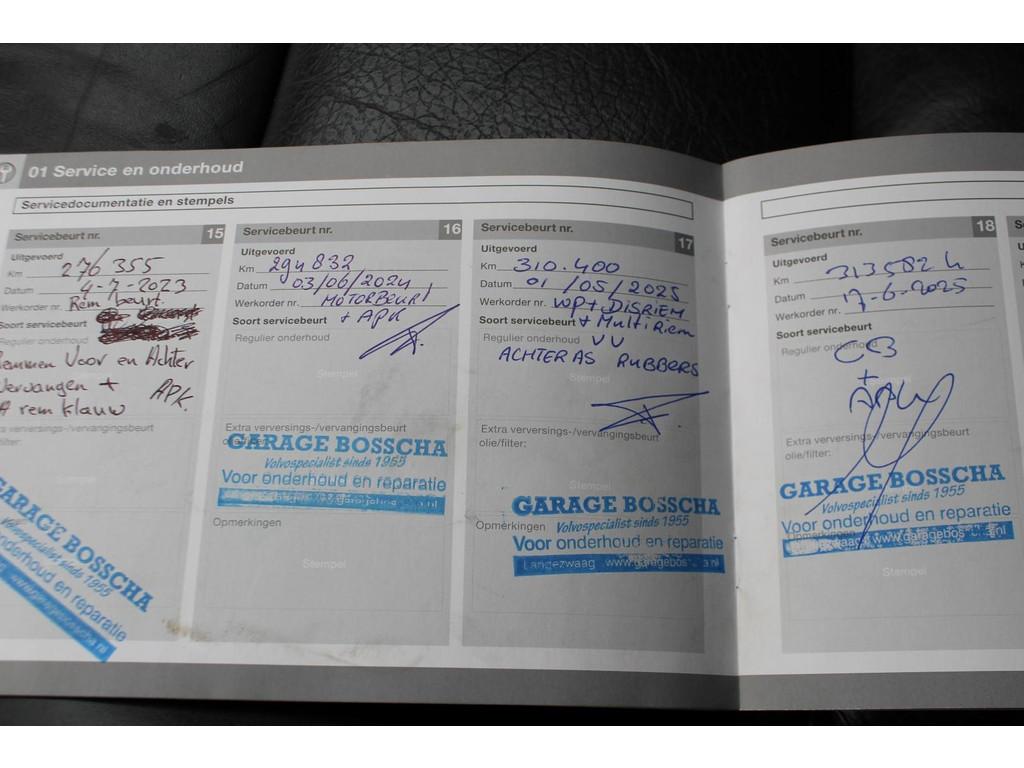 01 Service en onderhoud
Servicedocumentatie en stempels
Servicebeurt nr. 15
Uitgevoerd
Km 276 355
Datum 4-7-2023
Werkorder nr. Rem beurt.
Soort servicebeurt
Regulier onderhoud
Remmen Voor en Achter
Vervangen + APK.
rem klauw
Extra verversings-/vervangingsbeurt
olie/filter:
GARAGE BOSSCHA
Volvospecialist sinds 1955
onderhoud en reparatie
www.garagebosscha.nl
Servicebeurt nr. 16
Uitgevoerd
Km 294 832
Datum 03/06/2024
Werkorder nr. MOTORBEURT
Soort servicebeurt + APK
Regulier onderhoud
Stempel
Extra verversings-/vervangingsbeurt
olie/filter:
GARAGE BOSSCHA
Volvospecialist sinds 1955
Voor onderhoud en reparatie
Opmerkingen
Stempel
Servicebeurt nr. 17
Uitgevoerd
Km 310.400
Datum 01/05/2025
Werkorder nr. WP+ DISRIEM
Soort servicebeurt + Multi Riem
Regulier onderhoud VV
ACHTER AS RUBBERS
Stempel
Extra verversings-/vervangingsbeurt
olie/filter:
Stempel
GARAGE BOSSCHA
Opmerkingen Volvospecialist sinds 1955
Voor onderhoud en reparatie
Langezwaag www.garagebos
Servicebeurt nr. 18
Uitgevoerd
Km 313582
Datum 17-6-2025
Werkorder nr.
Soort servicebeurt
Regulier onderhoud
+
APK
Extra verversings-/vervangingsbeurt
olie/filter:
GARAGE BOSSCHA
Volvospecialist sinds 1955
Voor onderhoud en reparatie
Opmerkingen
www.garagebos
Stempel